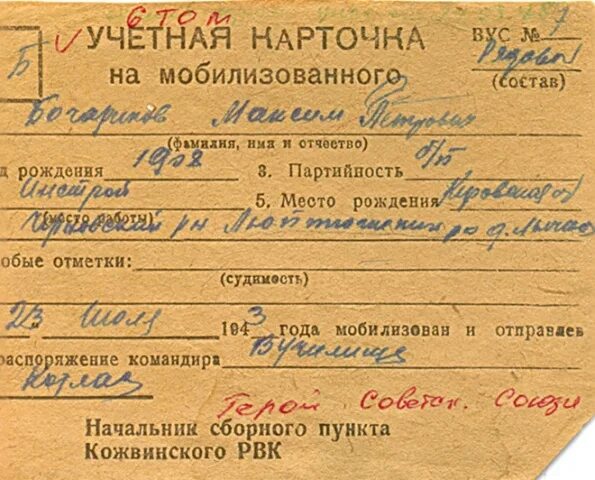 С ТОМ
Б
V УЧЕТНАЯ КАРТОЧКА
ВУС № 7
на мобилизованного
Рядовой
(состав)
Бочариков Максим Петрович
(фамилия, имя и отчество)
д рождения 1908 3. Партийность б/п
5. Место рождения Кировская о
(место работы)
рн рн д.
обые отметки:
(судимость)
23 Июля 1943 года мобилизован и отправлен
распоряжение командира В училище
Котлас
Герой Советск. Союза
Начальник сборного пункта
Кожвинского РВК